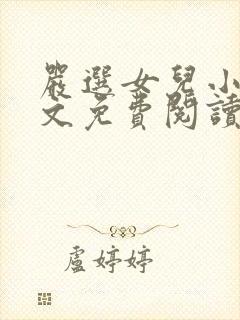 嚴選女兒小
文免費閱讀
盧婷婷